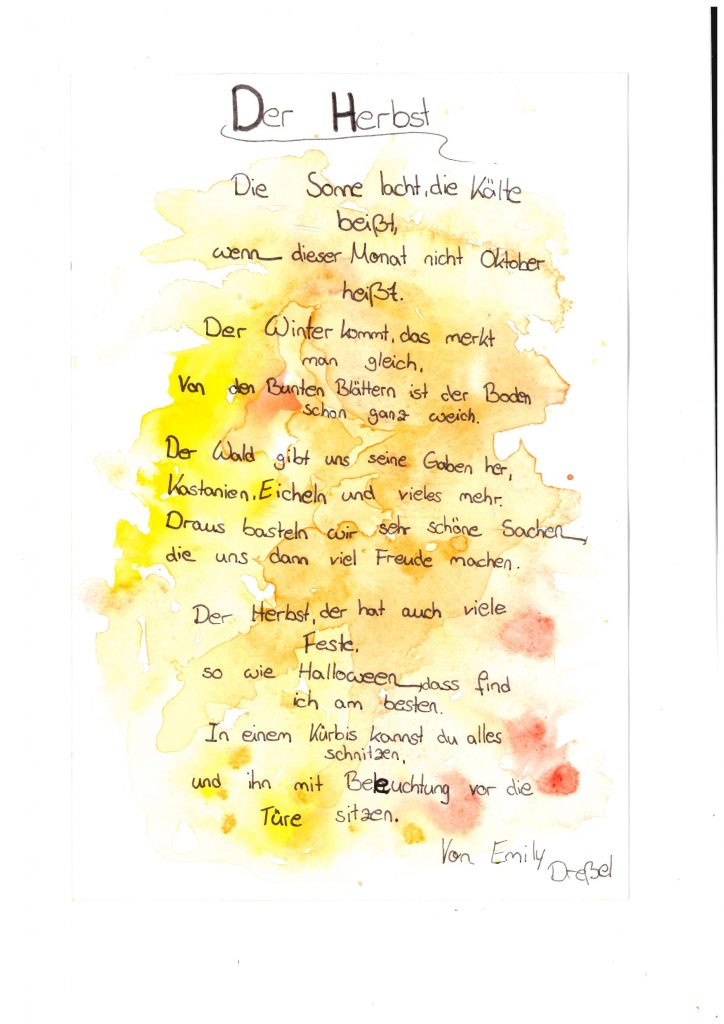 Der Herbst
Die Sonne lacht, die Kälte
beißt,
wenn dieser Monat nicht Oktober
heißt.
Der Winter kommt, das merkt
man gleich,
Von den Bunten Blättern ist der Boden
schon ganz weich.
Der Wald gibt uns seine Gaben her,
Kastanien, Eicheln und vieles mehr.
Draus basteln wir sehr schöne Sachen,
die uns dann viel Freude machen.
Der Herbst, der hat auch viele
Feste,
so wie Halloween, dass find
ich am besten.
In einem Kürbis kannst du alles
schnitzen,
und ihn mit Beleuchtung vor die
Türe sitzen.
Von Emily
Dreßel